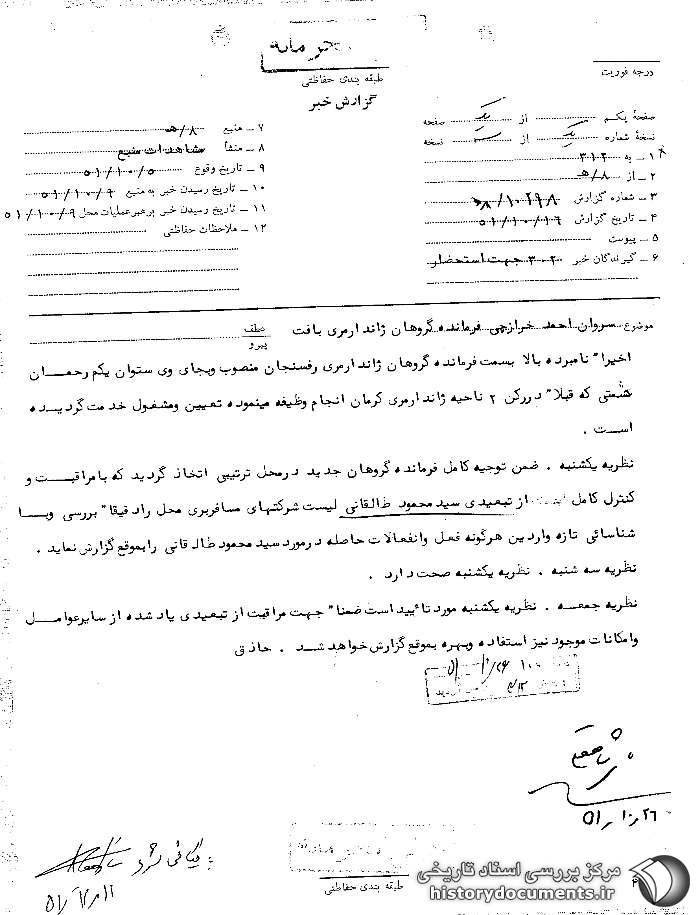 محرمانه
طبقه بندی حفاظتی
گزارش خبر
درجه فوریت
صفحهٔ یکم از یک صفحه
نسخهٔ شماره یک از نسخه
۱ ـ به ۳۱۲
۲ ـ از ۸/هـ
۳ ـ شماره گزارش ۸/۱۰۲۹۸هـ
۴ ـ تاریخ گزارش ۵۱/۱۰/۱۶
۵ ـ پیوست
۶ ـ گیرندگان خبر ۳۰۲ جهت استحضار
۷ ـ منبع ۸/هـ
۸ ـ منشأ مشاهدات منبع
۹ ـ تاریخ وقوع ۵۱/۱۰/۵
۱۰ ـ تاریخ رسیدن خبر به منبع ۵۱/۱۰/۹
۱۱ ـ تاریخ رسیدن خبر برهبر عملیات محل ۵۱/۱۰/۹
۱۲ ـ ملاحظات حفاظتی
موضوع سروان احمد خرازچی فرمانده گروهان ژاندارمری بافت
عطف
پیرو
اخیرا" نامبرده بالا بسمت فرمانده گروهان ژاندارمری رفسنجان منصوب وبجای وی ستوان یکم رحمان
حشمتی که قبلا" دررکن ۲ ناحیه ژاندارمری کرمان انجام وظیفه مینموده تعیین ومشغول خدمت گردیده
است .
نظریه یکشنبه . ضمن توجیه کامل فرمانده گروهان جدید درمحل ترتیبی اتخاذ گردید که بامراقبت و
کنترل کامل از تبعیدی سید محمود طالقانی لیست شرکتهای مسافربری محل را دقیقا" بررسی وبا
شناسائی تازه واردین هرگونه فعل وانفعالات حاصله درمورد سید محمود طالقانی رابموقع گزارش نماید .
نظریه سه شنبه . نظریه یکشنبه صحت دارد .
نظریه جمعه . نظریه یکشنبه مورد تأیید است ضمنا" جهت مراقبت از تبعیدی یاد شده از سایرعوامل
وامکانات موجود نیز استفاده وبهره بموقع گزارش خواهد شد . حاذقی
۵۱/۱۰/۲۶
بایگانی شود
۵۱/۱۲/۱۱
طبقه بندی حفاظتی
مرکز بررسی اسناد تاریخی
historydocuments.ir